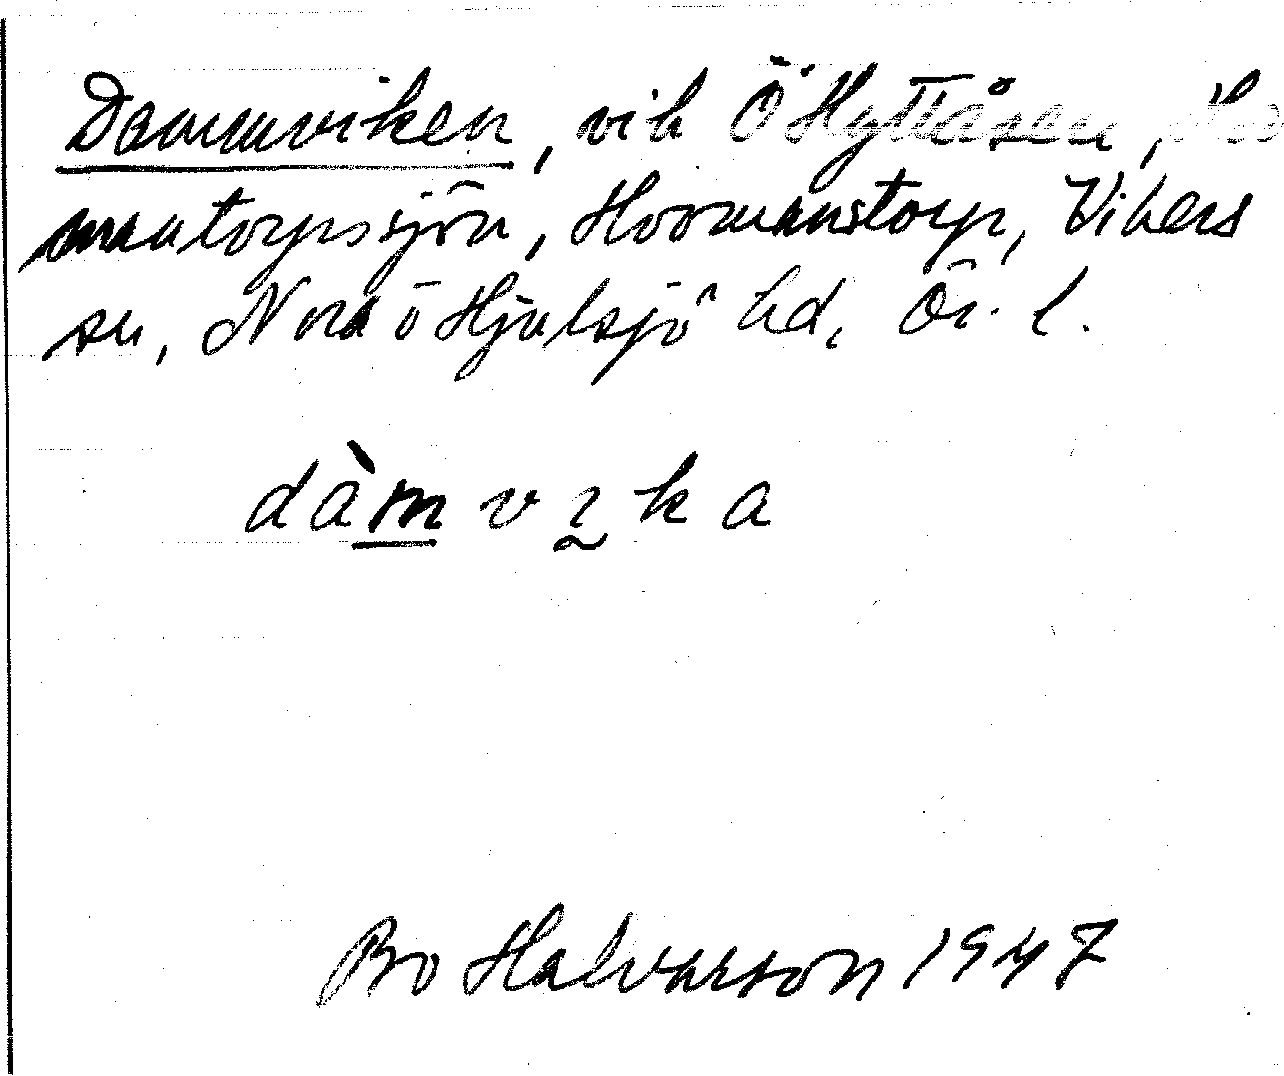 Dammviken, vik Ö Hyttåsen,
mantorpssjön, Hovmanstorp, Vikers
sn, Nora o Hjulsjö hd, Ör. l.
dàmvıka
Bo Halvarson 1947